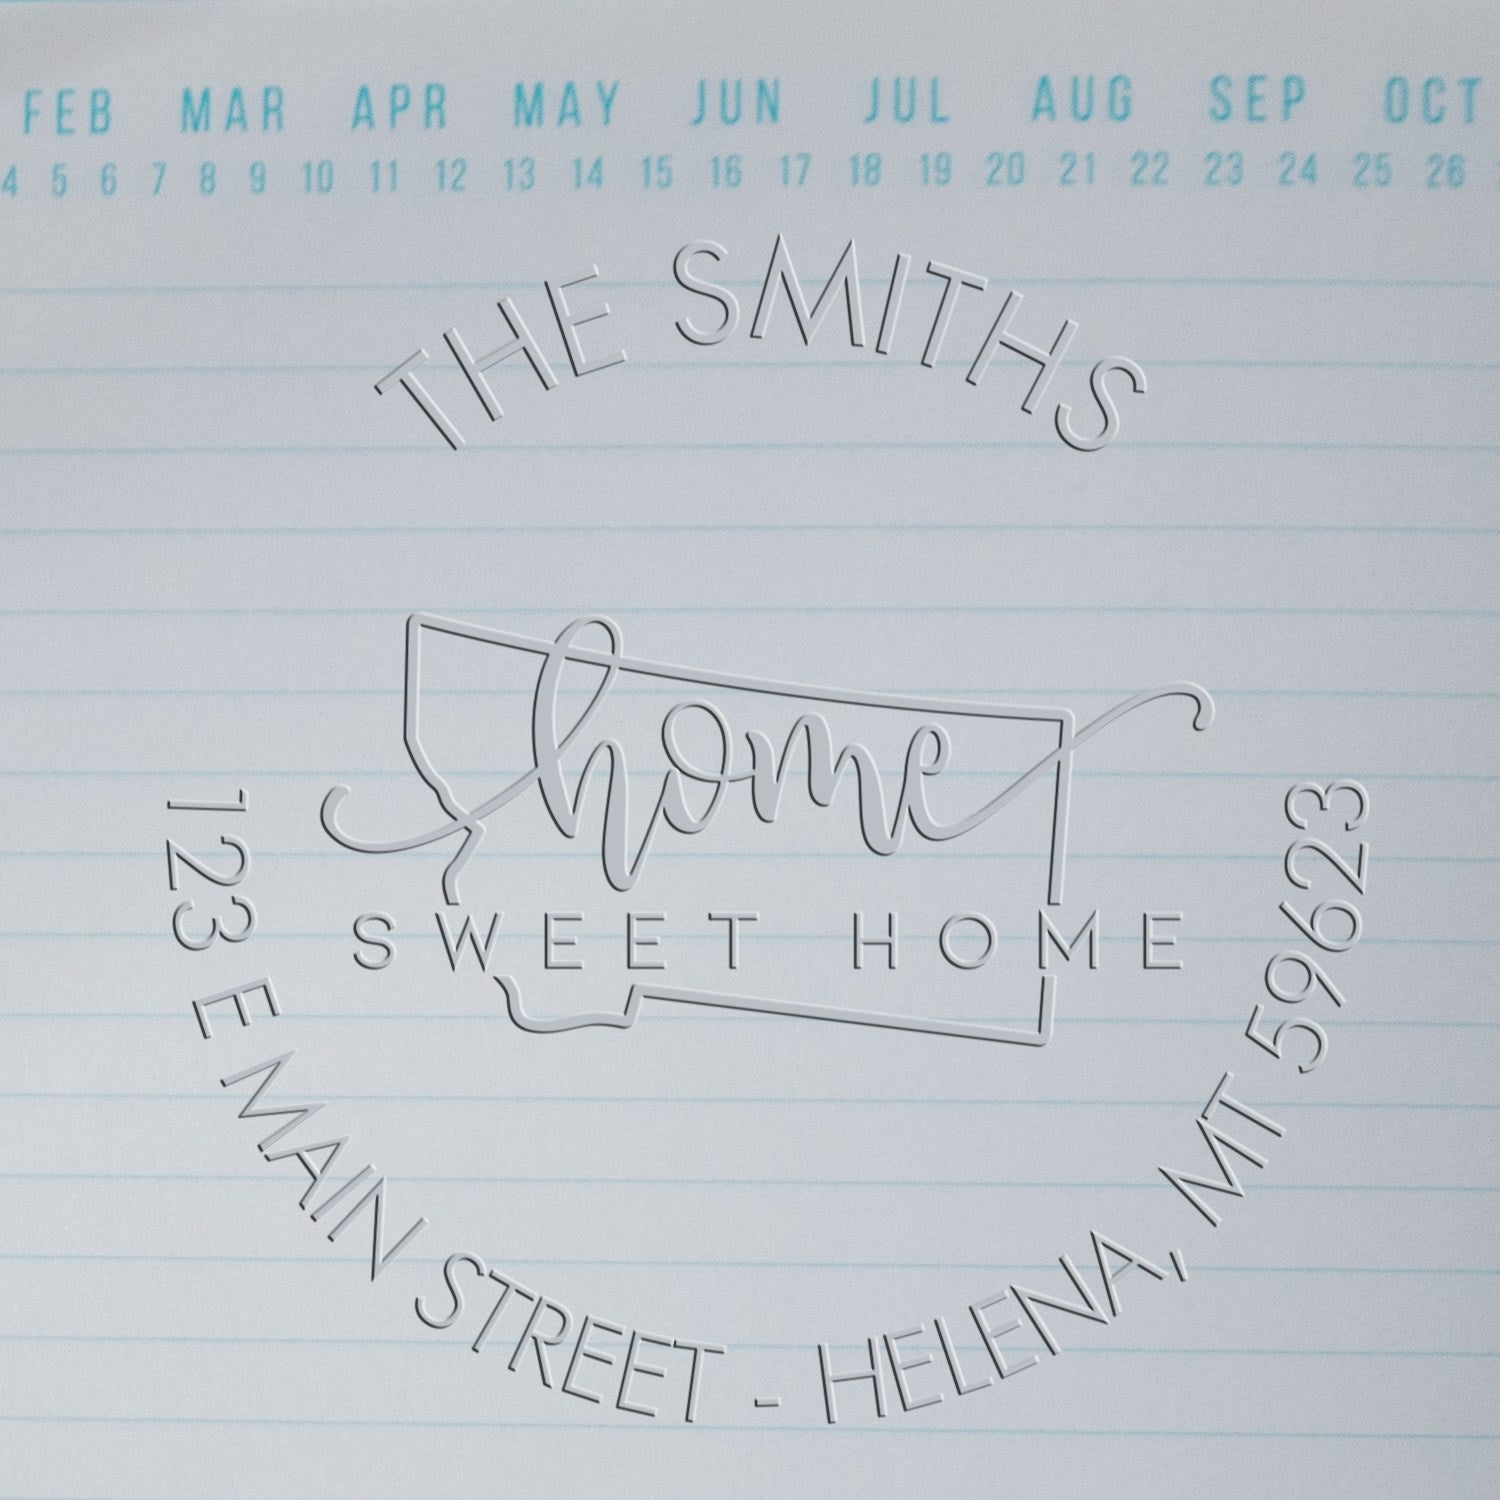 FEB MAR APR MAY JUN JUL AUG SEP OCT
4 5 6 7 8 9 10 11 12 13 14 15 16 17 18 19 20 21 22 23 24 25 26
THE SMITHS
home
SWEET HOME
123 E MAIN STREET - HELENA, MT 59623